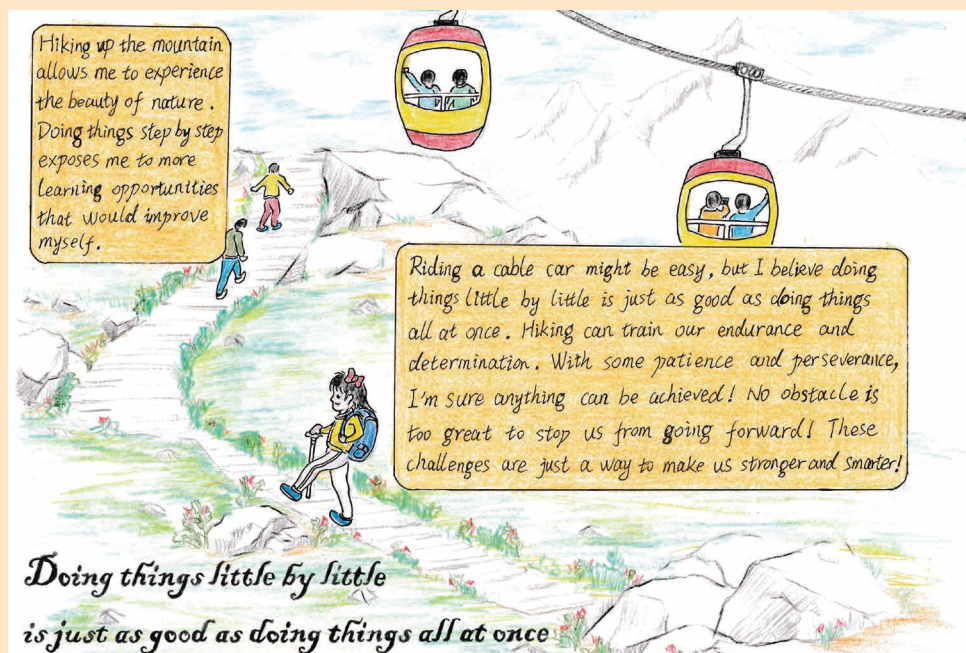 Hiking up the mountain
allows me to experience
the beauty of nature.
Doing things step by step
exposes me to more
learning opportunities
that would improve
myself.
Riding a cable car might be easy, but I believe doing
things little by little is just as good as doing things
all at once. Hiking can train our endurance and
determination. With some patience and perseverance,
I'm sure anything can be achieved! No obstacle is
too great to stop us from going forward! These
challenges are just a way to make us stronger and smarter!
Doing things little by little
is just as good as doing things all at once